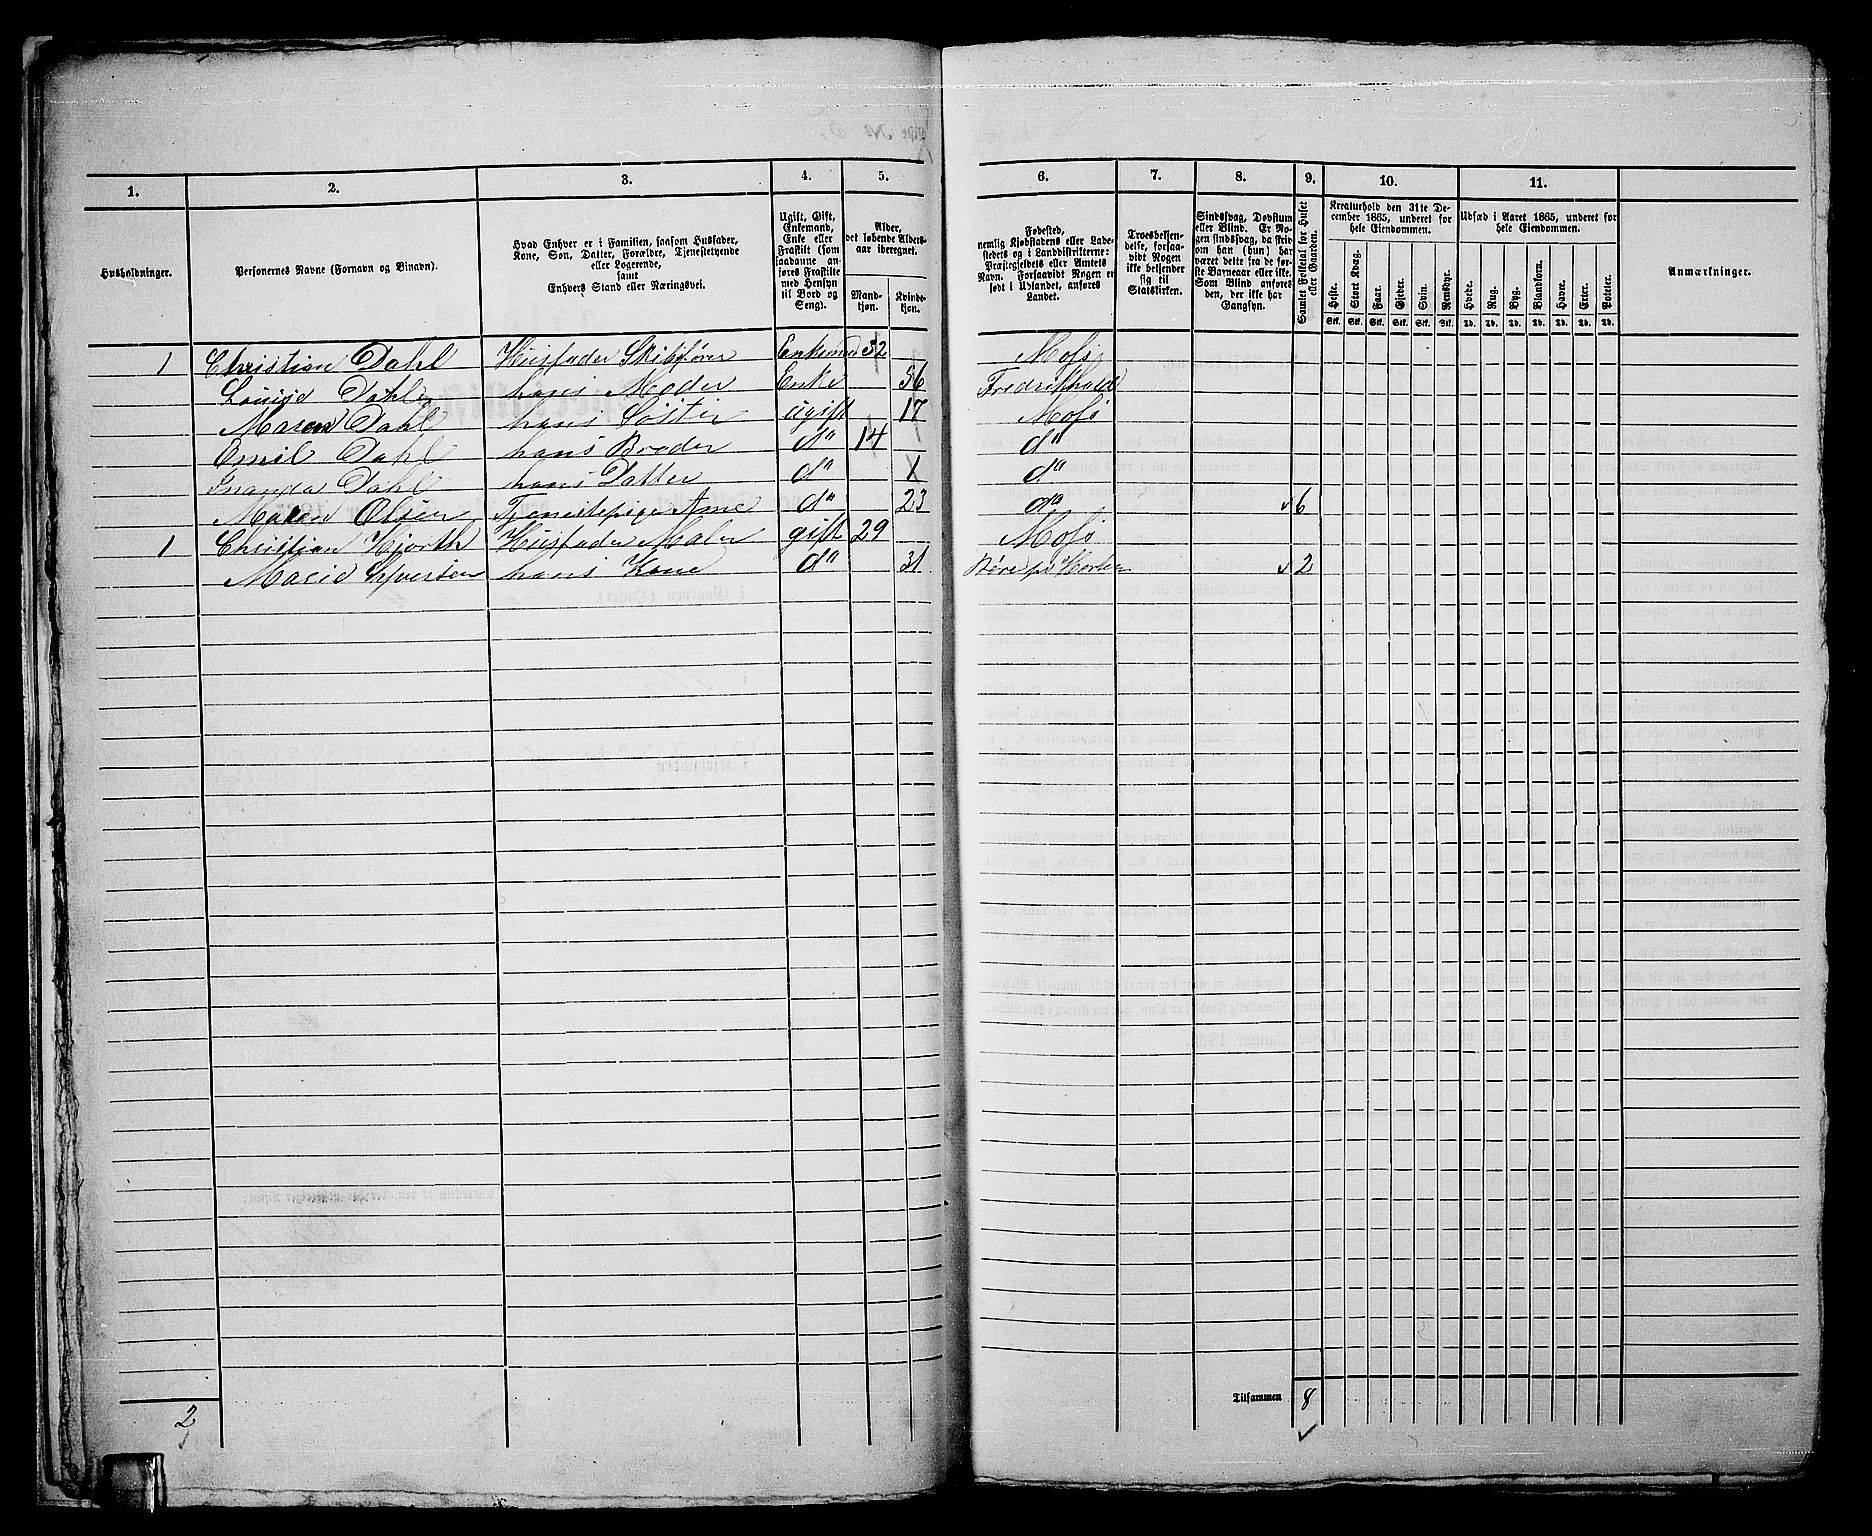 1. 2. 3. 4. 5. 6. 7. 8. 9. 10. 11.
Husholdninger.
Personernes Navne (Fornavn og Binavn).
Hvad Enhver er i Familien, saasom Husfader,
Kone, Søn, Datter, Forældre, Tjenestetyende
eller Logerende,
samt
Enhvers Stand eller Næringsvei.
Ugift, Gift,
Enkemand,
Enke eller
Fraskilt (som
saadanne an-
føres Fraskilte
med Hensyn
til Bord og
Seng).
Alder,
det løbende Alders-
aar iberegnet.
Mand-
kjøn.
Kvinde-
kjøn.
Fødested,
nemlig Kjøbstadens eller Lade-
stedets og i Landdistrikterne:
Præstegjeldets eller Amtets
Navn. Forsaavidt Nogen er
født i Udlandet, anføres
Landet.
Troesbekjen-
delse, forsaa-
vidt Nogen
ikke bekjender
sig til
Statskirken.
Sindssvag, Døvstum
eller Blind. Er No-
gen sindssvag, da skri-
ves om han (hun) har
været dette fra de før-
ste Barneaar eller ikke.
Som Blind anføres
den, der ikke har
Gangsyn.
Samlet Folketal for Huset
eller Gaarden.
Kreaturhold den 31te De-
cember 1865, underet for
hele Eiendommen.
Heste. Stort Kvæg. Faar. Gjeder. Svin. Rensdyr.
Stk. Stk. Stk. Stk. Stk. Stk.
Udsæd i Aaret 1865, underet for
hele Eiendommen.
Hvede. Rug. Byg. Blandkorn. Havre. Erter. Poteter.
Td. Td. Td. Td. Td. Td. Td.
Anmærkninger.
1 Christian Dahl Husfader Skibsfører Enkemd 32 Moss
Lovise Dahl hans Moder Enke 56 Fredrikhald
Maren Dahl hans Søster ugift 17 Moss
Emil Dahl hans Broder do 14 do
Dahl hans Datter do 1 do
Maren Olsen Tjenestepige Ame do 23 do 6
1 Christian Hjorth Husfader Maler gift 29 Moss
Marie Syversen hans Kone do 31 Horten 2
2
Tilsammen 8